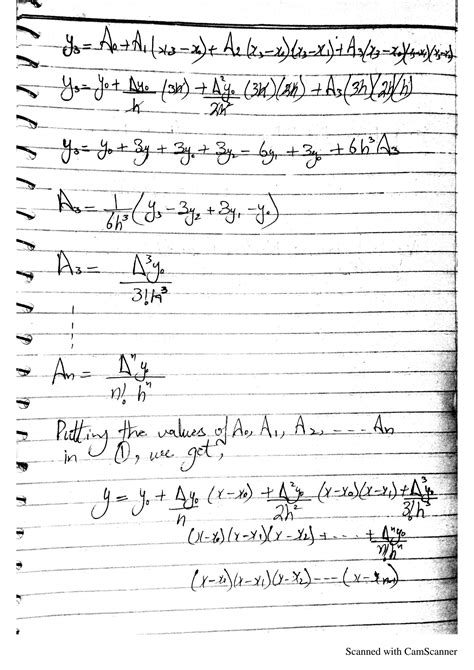 y₃ = A₀ + A₁(x₃ - x₀) + A₂(x₃ - x₀)(x₃ - x₁) + A₃(x₃ - x₀)(x₃ - x₁)(x₃ - x₂)
y₃ = y₀ + Δy₀/h (3h) + Δ²y₀/2h² (3h)(2h) + A₃(3h)(2h)(h)
y₃ = y₀ + 3y + 3y₀ + 3y₂ - 6y₁ + 3y₀ + 6h³A₃
A₃ = 1/6h³ (y₃ - 3y₂ + 3y₁ - y₀)
A₃ = Δ³y₀/3!h³
Aₙ = Δⁿy₀/n! hⁿ
Putting the values of A₀, A₁, A₂, ---- Aₙ
in ①, we get,
y = y₀ + Δy₀/h (x - x₀) + Δ²y₀/2h² (x - x₀)(x - x₁) + Δ³y₀/3!h³
(x - x₀)(x - x₁)(x - x₂) + ---- + Δⁿy₀/n!hⁿ
(x - x₀)(x - x₁)(x - x₂) ---- (x - xₙ₋₁)
Scanned with CamScanner